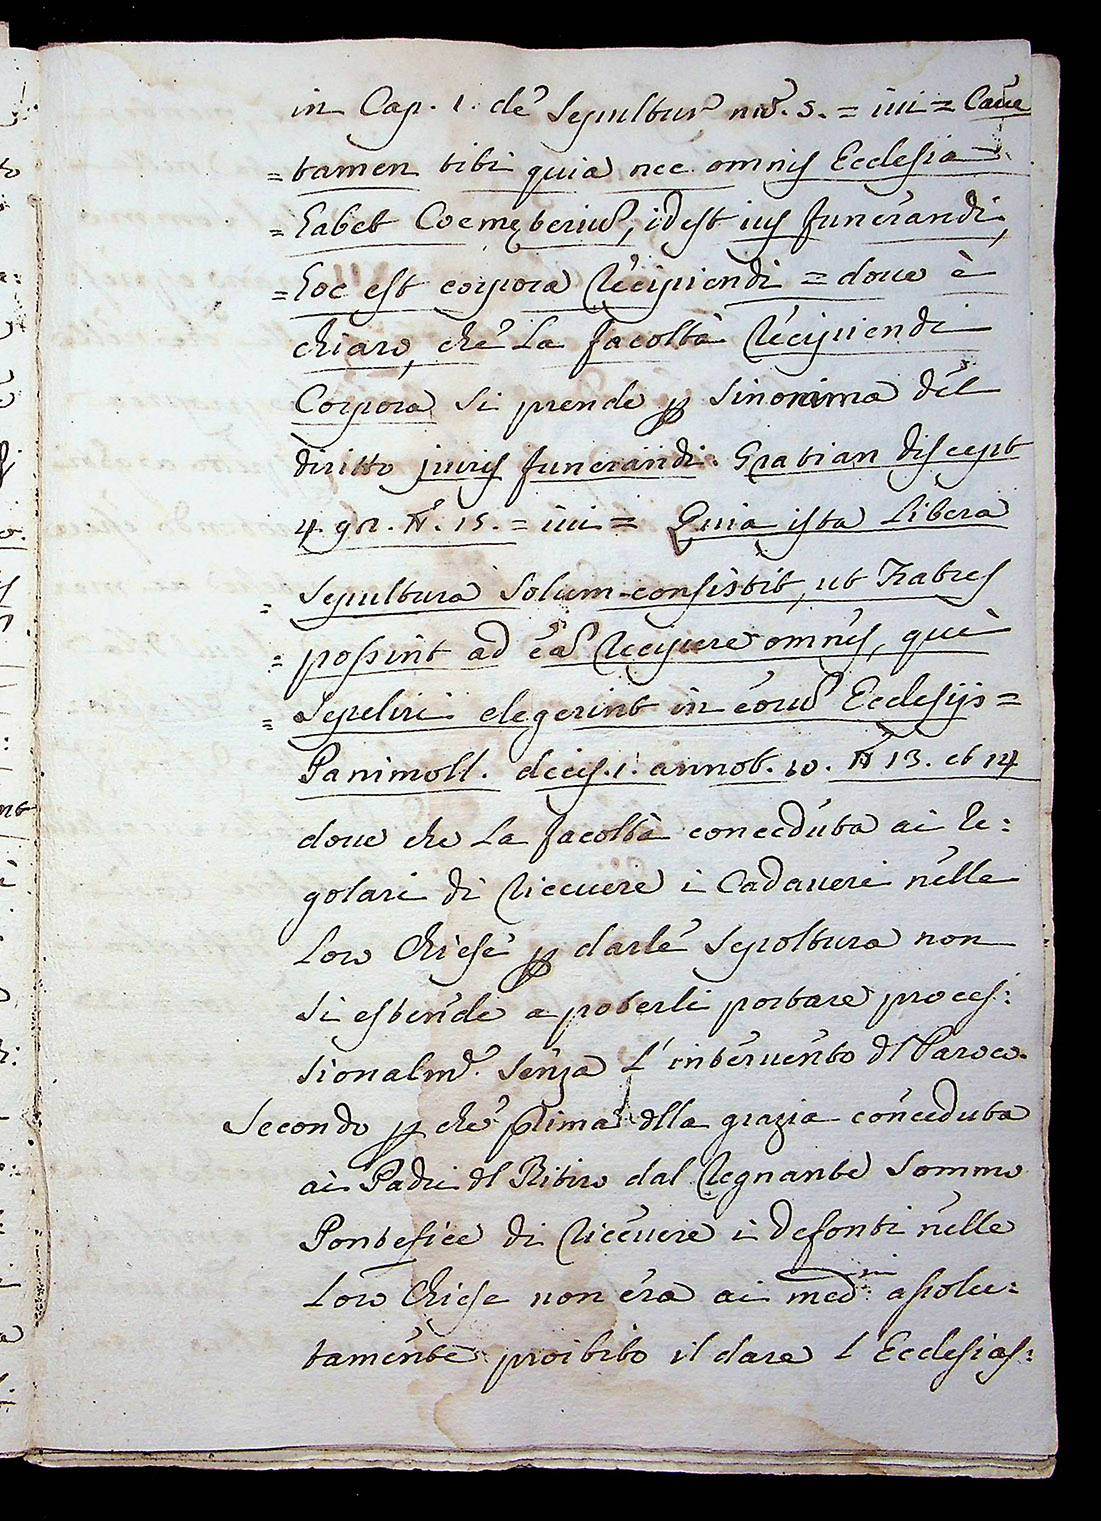 in Cap. 1. de Sepultur nũ. 5. = iui = Caue
= tamen tibi quia nec omnis Ecclesia
= habet Coemeteriũ, idest ius funerandi,
= hoc est corpora recipiendi = doue è
chiaro, che la facoltà recipiendi
Corpora si prende p sinonima del
diritto juris funerandi. Gratian discept
4. 92. N. 15. = iui = Quia ista libera
= sepultura solum consistit, ut Fratres
= possint ad eã recipere omnes, qui
= sepeliri elegerint in eorũ Ecclesijs =
Panimoll. decis. 1. annot. 10. N 13. et 14
doue che la facoltà conceduta ai re:
golari di riceuere i Cadaueri nelle
loro Chiese p darle sepoltura non
si estende a poterli portare proces:
sionalmẽ. senza l'interuento dl Paroco.
Secondo p che prima dlla grazia conceduta
ai Padri dl Ritiro dal regnante Sommo
Pontefice di riceuere i defonti nelle
loro Chiese non era ai medmi assolu:
tamente proibito il dare l'Ecclesias: